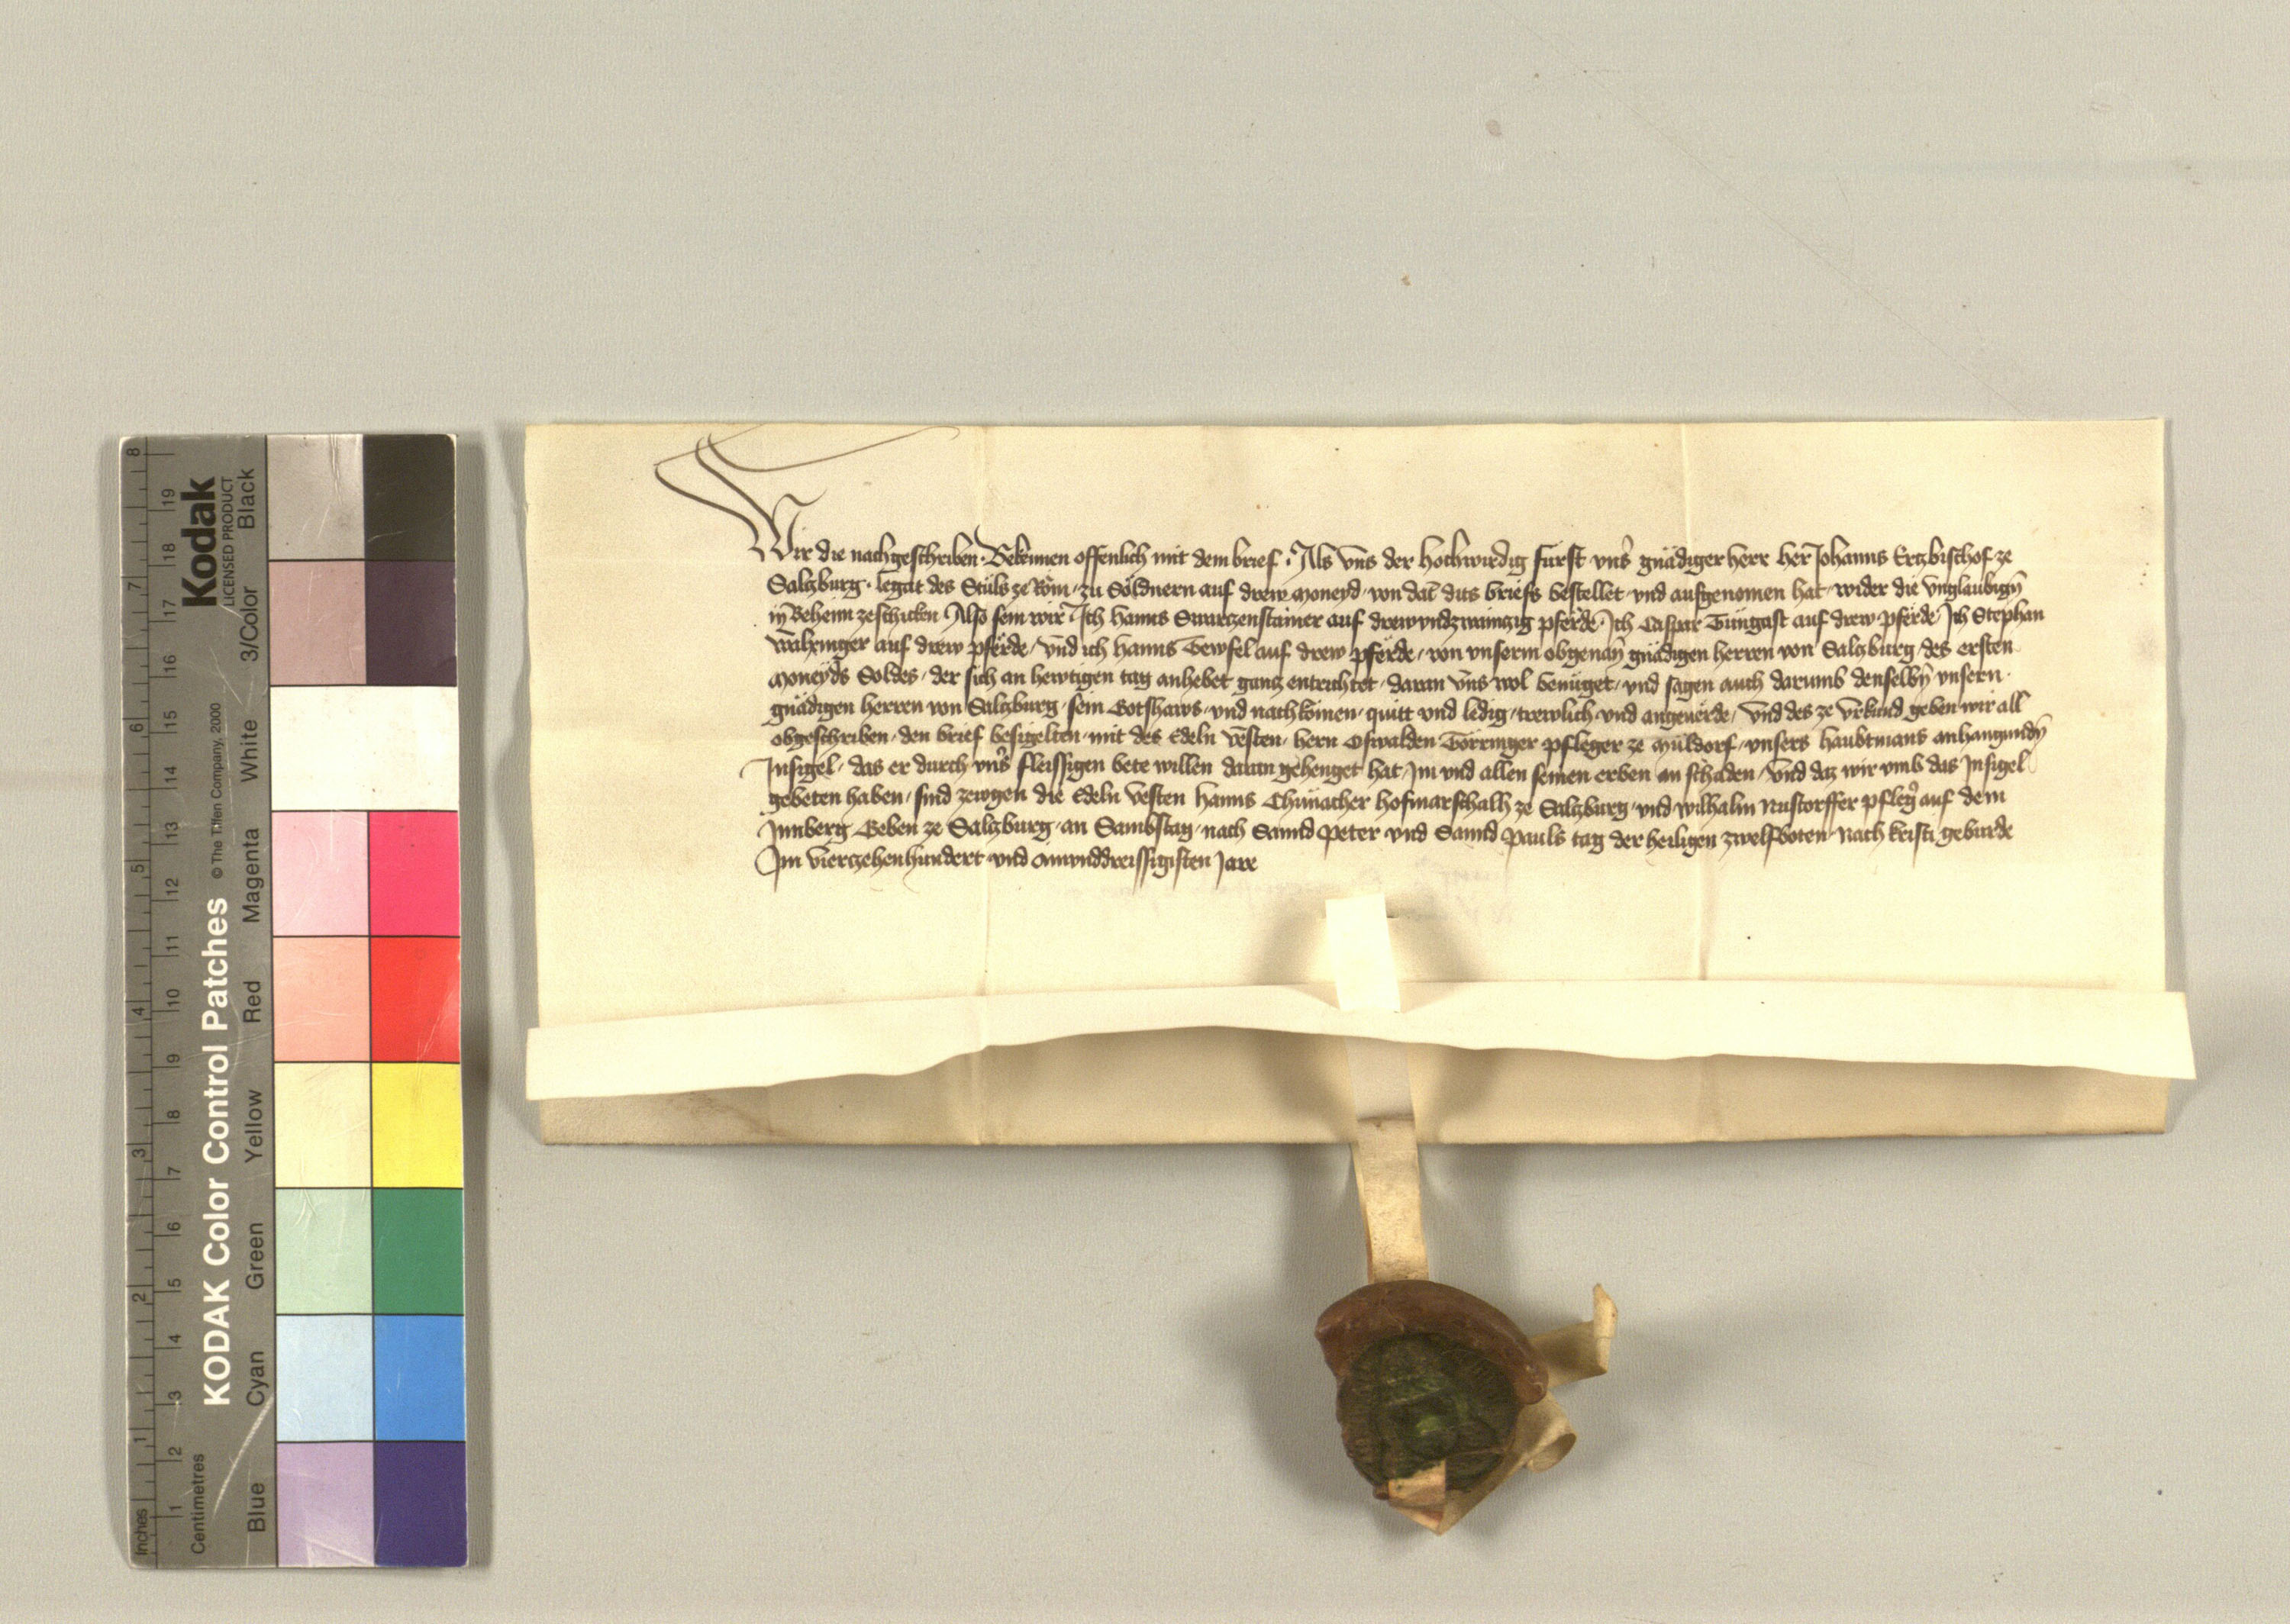 Wir die nachgeschriben Bekennen offenlich mit dem brief Als vns der hochwirdig fürst vnsʼ gnädiger herre her Johanns Ertzbischof ze
Salzburg legat des Stůls ze Rom zu Söldnern auf drew moneyd von dat dits briefs bestellet vnd aufgenomen hat wider die vnglaubigñ
in Behem zeschicken Also sein wir Ich Hanns Swartzenstainer auf drewvndzwaintzig pferde Ich Caspar Tüngast auf drew pferde Ich Stephan
auf drew pferde vnd ich Hanns Tewfel auf drew pferde von vnserm obgenañ gnädigen herren von Salzburg des ersten
moneyds Soldes der sich an hewtigen tag anhebet gantz entrichtet daran vns wol benüget vnd sagen auch darumb denselbñ vnsern
gnädigen herren von Salzburg sein Gotshaws vnd nachkomen quitt vnd ledig trewlich vnd angeuerde vnd des ze vrkund geben wir all
obgeschriben den brief besigelten mit des Edeln vesten hern Oswalden Törringer pfleger ze Müldorf vnsers haubtmans anhangundñ
Insigel das er durch vnsʼ fleissigen bete willen daran gehenget hat im vnd allen seinen erben an schaden vnd daz wir vmb das Insigel
gebeten haben sind zewgen die Edeln vesten Hanns Chünacher hofmarschalh ze Salzburg vnd Wilhalm Nustorffer pflegʼ auf dem
Innberg Geben ze Salzburg an Sambstag nach Sannd Peter vnd Sannd Pauls tag der heiligen zwelfboten Nach kristi geburde
Im vierzehenhundert vnd ainvnddreissigisten Jare
Kodak
LICENSED PRODUCT
KODAK Color Control Patches
© The Tiffen Company, 2000
Black
3/Color
White
Magenta
Red
Yellow
Green
Cyan
Blue
Inches
1
2
3
4
5
6
7
8
Centimetres
1
2
3
4
5
6
7
8
9
10
11
12
13
14
15
16
17
18
19